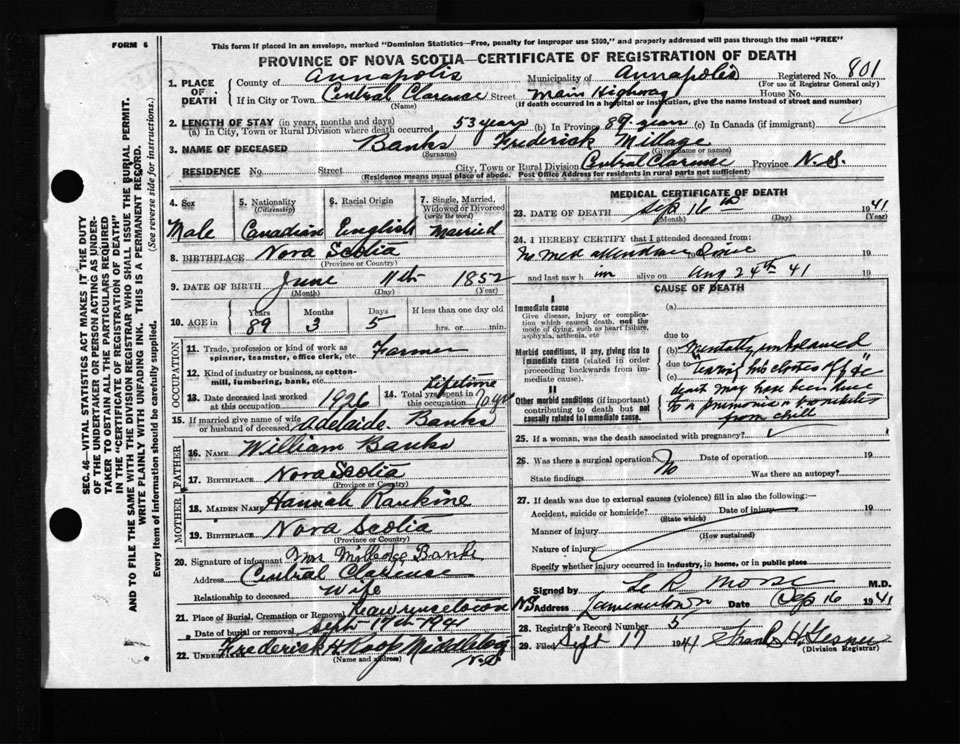 FORM 6
This form if placed in an envelope, marked "Dominion Statistics—Free, penalty for improper use $300," and properly addressed will pass through the mail "FREE"
PROVINCE OF NOVA SCOTIA—CERTIFICATE OF REGISTRATION OF DEATH
1. PLACE OF DEATH County of Annapolis Municipality of Annapolis Registered No. 801
(For use of Registrar General only)
If in City or Town Central Clarence Street Main Highway House No.
(Name) (If death occurred in a hospital or institution, give the name instead of street and number)
2. LENGTH OF STAY (in years, months and days)
(a) In City, Town or Rural Division where death occurred 53 years (b) In Province 89 years (c) In Canada (if immigrant)
3. NAME OF DECEASED Banks Frederick Millage
(Surname) (Given name or names)
RESIDENCE No. Street City, Town or Rural Division Central Clarence Province N.S.
(Residence means usual place of abode. Post Office Address for residents in rural parts not sufficient)
4. Sex 5. Nationality (Citizenship) 6. Racial Origin 7. Single, Married, Widowed or Divorced (write the word)
Male Canadian English Married
8. BIRTHPLACE Nova Scotia
(Province or Country)
9. DATE OF BIRTH June 11th 1852
(Month) (Day) (Year)
10. AGE in Years Months Days If less than one day old
89 3 5 hrs. or min.
OCCUPATION
11. Trade, profession or kind of work as spinner, teamster, office clerk, etc. Farmer
12. Kind of industry or business, as cotton-mill, lumbering, bank, etc.
13. Date deceased last worked at this occupation 1926 14. Total yrs. spent in this occupation Lifetime
15. If married give name of wife or husband of deceased Adelaide Banks
FATHER
16. NAME William Banks
17. BIRTHPLACE Nova Scotia
(Province or Country)
MOTHER
18. MAIDEN NAME Hannah
19. BIRTHPLACE Nova Scotia
(Province or Country)
20. Signature of informant Millage Banks
Address Central Clarence
Relationship to deceased Wife
21. Place of Burial, Cremation or Removal Lawrencetown N.S.
Date of burial or removal Sept 17th 1941
22. UNDERTAKER Frederick Middleton N.S.
(Name and address)
MEDICAL CERTIFICATE OF DEATH
23. DATE OF DEATH Sep 16th 1941
(Month) (Day) (Year)
24. I HEREBY CERTIFY that I attended deceased from:
No Med 19
and last saw him alive on Aug 24th 41 19
CAUSE OF DEATH
I
Immediate cause
Give disease, injury or complication which caused death, not the mode of dying, such as heart failure, asphyxia, asthenia, etc
(a)
due to
Morbid conditions, if any, giving rise to immediate cause (stated in order proceeding backwards from immediate cause).
(b) Mentally unbalanced
due to
(c) tearing his clothes off &c
II
Other morbid conditions (if important) contributing to death but not causally related to immediate cause.
death may have been due
to a pneumonia or bronchitis
from chill
25. If a woman, was the death associated with pregnancy?
26. Was there a surgical operation? No Date of operation 19
State findings Was there an autopsy?
27. If death was due to external causes (violence) fill in also the following:—
Accident, suicide or homicide? Date of injury 19
(State which)
Manner of injury
(How sustained)
Nature of injury
Specify whether injury occurred in industry, in home, or in public place
Signed by L R Morse M.D.
Address Date Sep 16 1941
28. Registrar's Record Number 5
29. Filed Sept 17 1941 H. Gesner
(Division Registrar)
SEC. 46—VITAL STATISTICS ACT MAKES IT THE DUTY
OF THE UNDERTAKER OR PERSON ACTING AS UNDER-
TAKER TO OBTAIN ALL THE PARTICULARS REQUIRED
IN THE "CERTIFICATE OF REGISTRATION OF DEATH"
AND TO FILE THE SAME WITH THE DIVISION REGISTRAR WHO SHALL ISSUE THE BURIAL PERMIT.
WRITE PLAINLY WITH UNFADING INK. THIS IS A PERMANENT RECORD.
Every item of information should be carefully supplied. (See reverse side for instructions.)